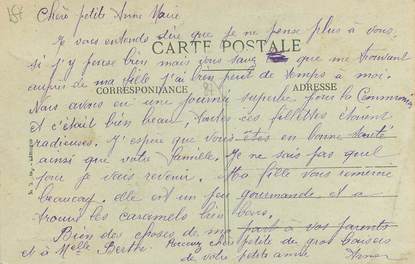 Chère petite Anne Marie
Je vous entends dire que je ne pense plus à vous,
CARTE POSTALE
si j'y pense bien mais vous savez que me trouvant
auprès de ma fille j'ai bien peu de temps à moi.
CORRESPONDANCE
ADRESSE
Nous avons eu une journée superbe pour la Communion
et c'était bien beau, toutes ces fillettes étaient
radieuses. J'espère que vous êtes en bonne santé
ainsi que votre famille. Je ne sais pas quel
jour je vais revenir. Ma fille vous remercie
beaucoup. elle est un peu gourmande et a
trouvé les caramels bien bons.
Bien des choses de ma part à vos parents
et à Melle Berthe. Recevez chère petite de gros baisers
de votre petite amie